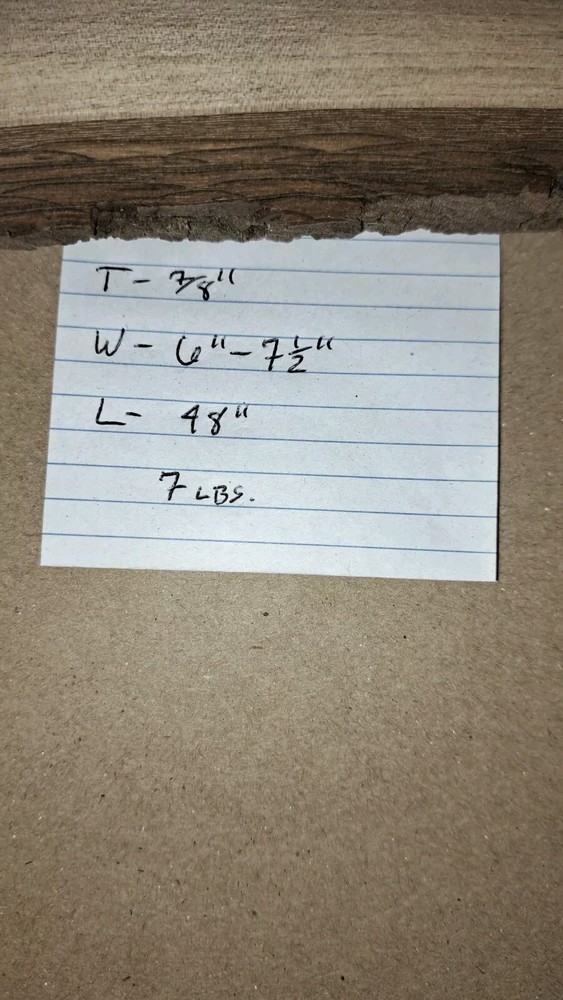 T - 7/8"
W - 6" - 7 1/2"
L - 48"
7 LBS.